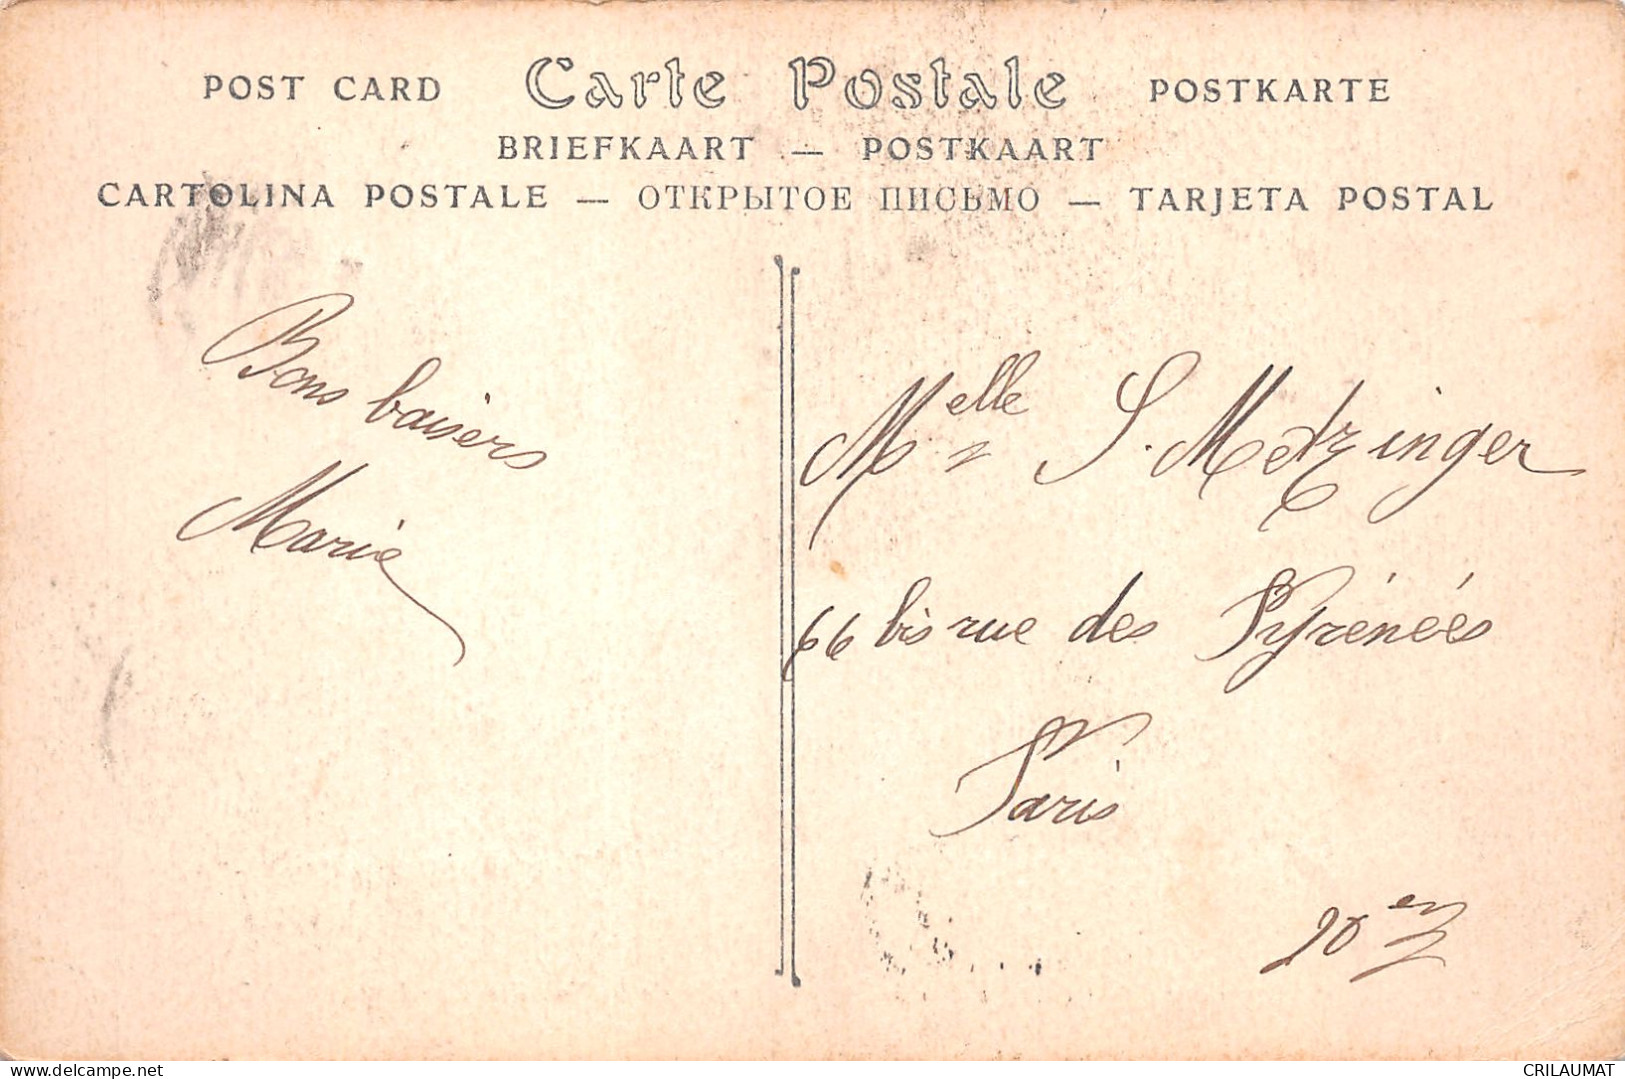 POST CARD Carte Postale POSTKARTE
BRIEFKAART — POSTKAART
CARTOLINA POSTALE — ОТКРЫТОЕ ПИСЬМО — TARJETA POSTAL
Bons baisers
Marie
Melle S. Metzinger
66 bis rue des Pyrénées
Paris
20e
delcampe.net
CRILAUMAT